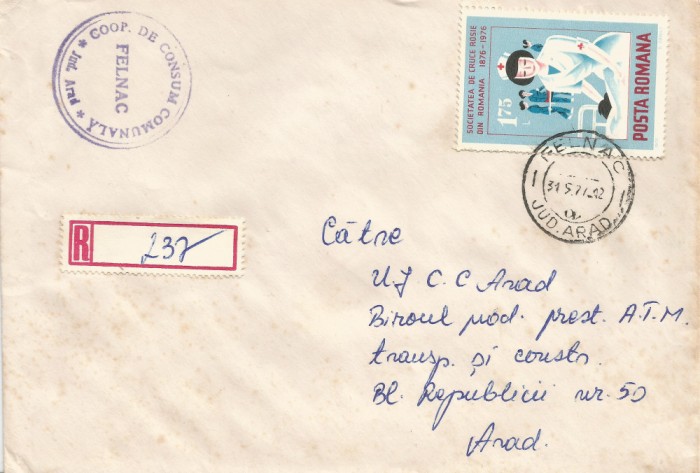 COOP. DE CONSUM COMUNALĂ
FELNAC
* Jud. Arad *
SOCIETATEA DE CRUCE ROSIE
DIN ROMANIA 1876-1976
1,75 L
POSTA ROMANA
FELNAC
31.5.77.12
JUD. ARAD
R
237
Către
U.J C.C Arad
Biroul prod. prest. A.T.M.
transp. și constr.
Bl. Republicii nr. 50
Arad.